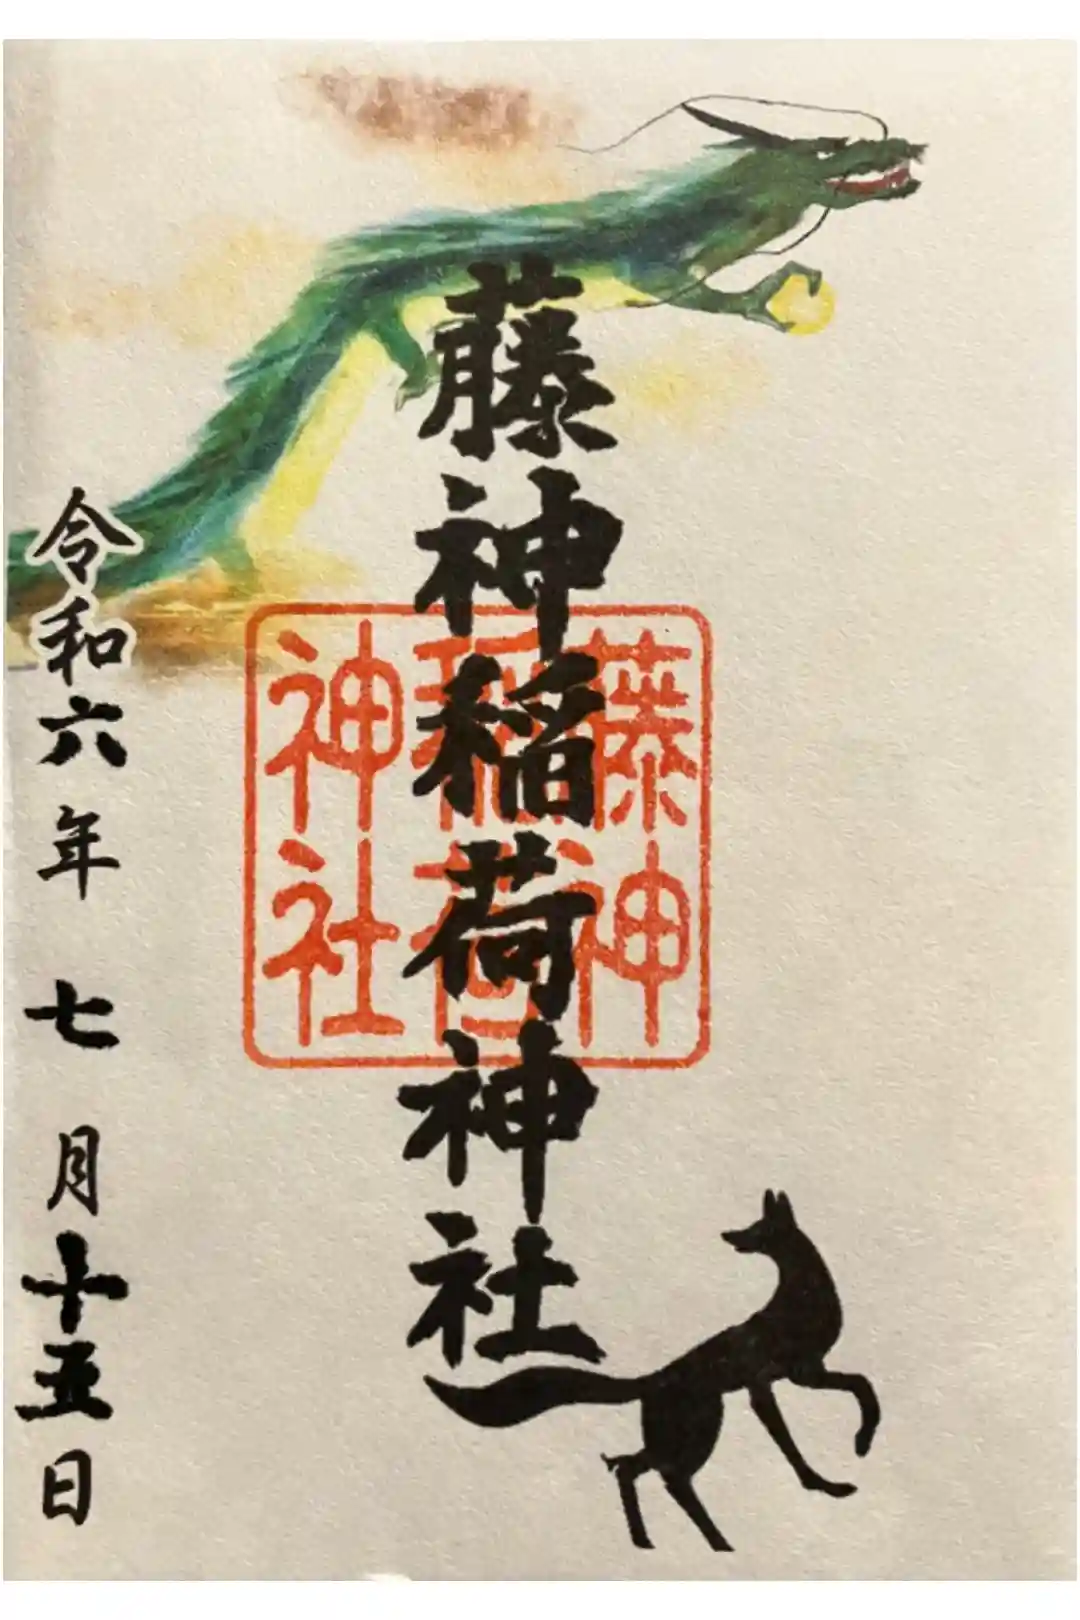 藤神稲荷神社
藤神
稲荷
神社
令和六年 七月十五日